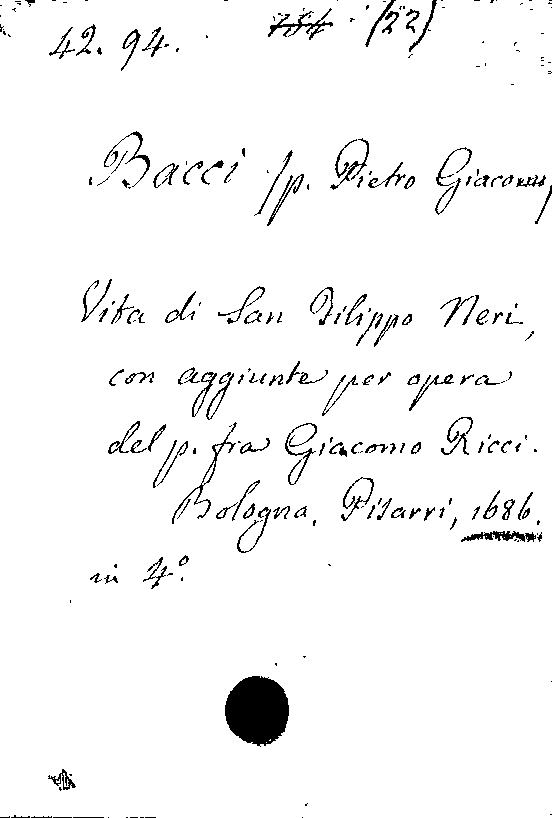 42. 94. 784 (22)
Bacci /p. Pietro Giacomo,
Vita di San Filippo Neri,
con aggiunte per opera
del p. fra Giacomo Ricci.
Bologna, Pisarri, 1686.
in 4º.